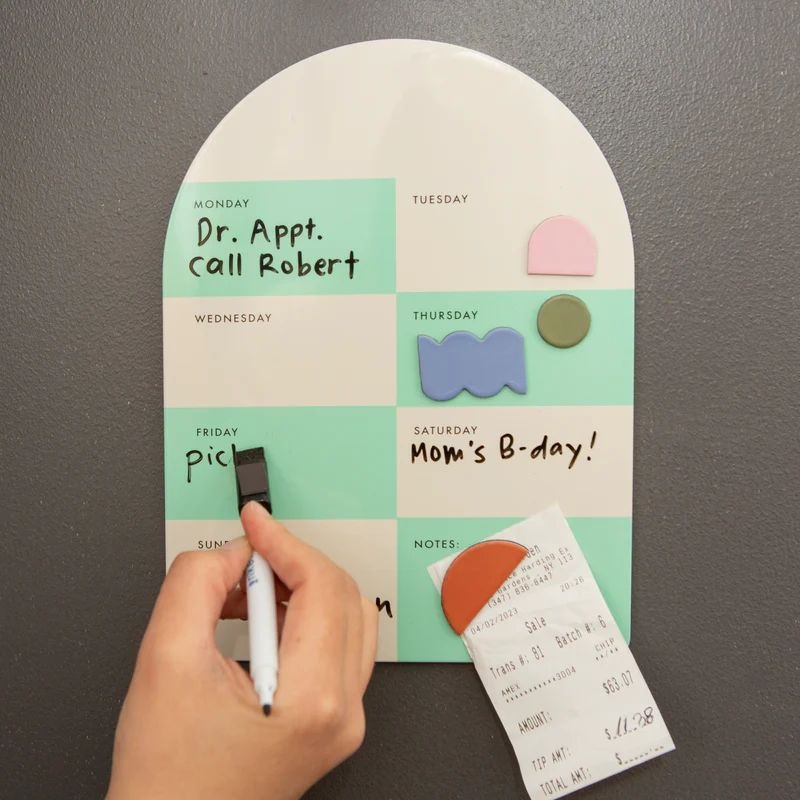 MONDAY
Dr. Appt.
Call Robert
TUESDAY
WEDNESDAY
THURSDAY
FRIDAY
pic
SATURDAY
Mom's B-day!
SUN
n
NOTES:
en
ce Harding Ex
Gardens, NY 113
(347) 836-6447
04/02/2023 20:26
Sale
Trans #: 81 Batch #: 6
AMEX CHIP
***********3004 **/**
AMOUNT: $63.07
TIP AMT: $ 11.38
TOTAL AMT: $